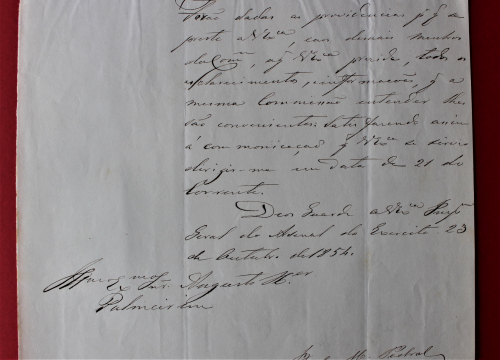 Serão dadas as providencias p.ª q se
preste a V Ex.ª, e aos demais membros
da Com.ᵐ, a q V Ex.ª preside, todos os
esclarecimentos, e informações, q a
mesma Commissão entender lhe
são convenientes: satisfazendo assim
á communicação q V Ex.ª se serviu
dirigir-me em data de 21 do
corrente.
Deos Guarde a V Ex.ª
Geral do Arsenal do Exercito 23
de Outubro de 1854.
Ill.mo Ex.mo Snr. Augusto X.er
Palmeirim